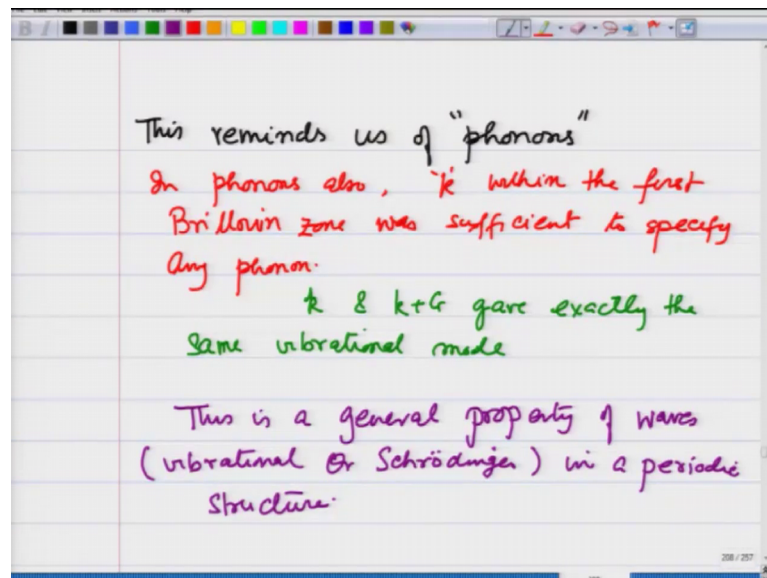 This reminds us of "phonons"
In phonons also, 'k' within the first
Brillouin zone was sufficient to specify
any phonon.
k & k+G gave exactly the
same vibrational mode
This is a general property of waves
(vibrational or Schrödinger) in a periodic
structure.
208 / 257